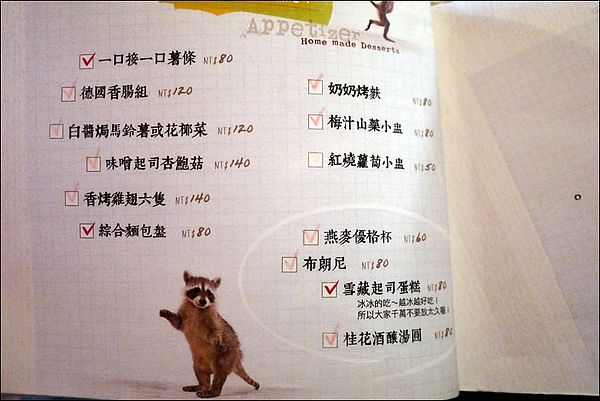 Appetizer
Home made Desserts
一口接一口薯條 NT$80
德國香腸組 NT$120
白醬焗馬鈴薯或花椰菜 NT$120
味噌起司杏鮑菇 NT$140
香烤雞翅六隻 NT$140
綜合麵包盤 NT$80
奶奶烤麩 NT$80
梅汁山藥小盅 NT$80
紅燒蘿蔔小盅 NT$50
燕麥優格杯 NT$60
布朗尼 NT$80
雪藏起司蛋糕 NT$80
冰冰的吃～越冰越好吃！
所以大家千萬不要放太久喔！
桂花酒釀湯圓 NT$80